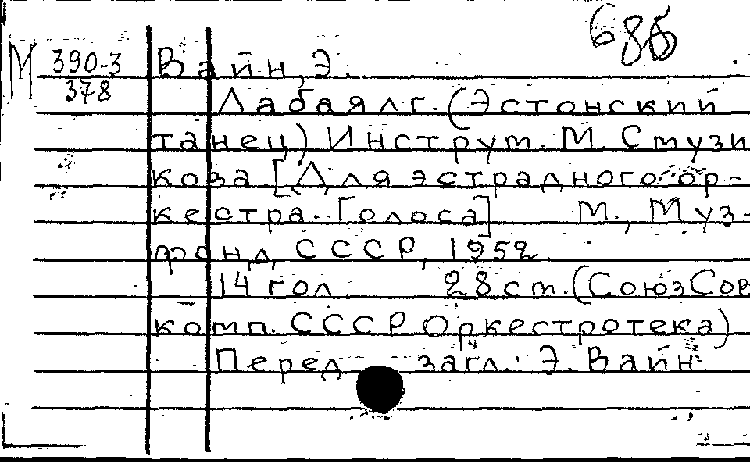 686
М 390-3 Вайн, Э.
378
Лабаялг. (Эстонский
танец) Инструт. М. Стузи
коза [Для эстрадного ор-
кестра. [голоса] М., Муз-
фонд СССР, 1952
14 гол 28 ст. (Союз Сов
комп. СССР Оркестротека)
Перед загл.: Э. Вайн